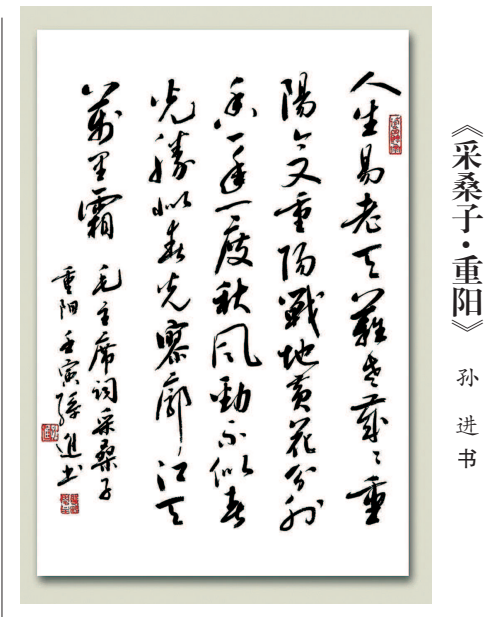 《采桑子·重阳》
孙 进 书
人生易老天難老歲〻重
陽今又重阳戰地黄花分外
香一年一度秋风勁不似春
光勝似春光寥廓江天
萬里霜
毛主席词采桑子
重阳 壬寅孫進书